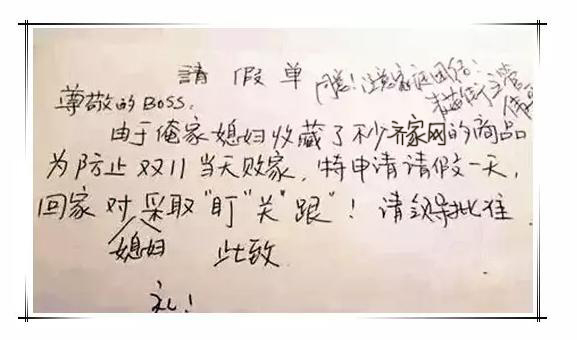 請假单
同意!注意家庭团结!
尊敬的BOSS,
由于俺家媳妇收藏了不少齐家网的商品
为防止双11当天败家,特申请请假一天,
回家对媳妇采取"盯"关"跟"!请领导批准
此致
礼!